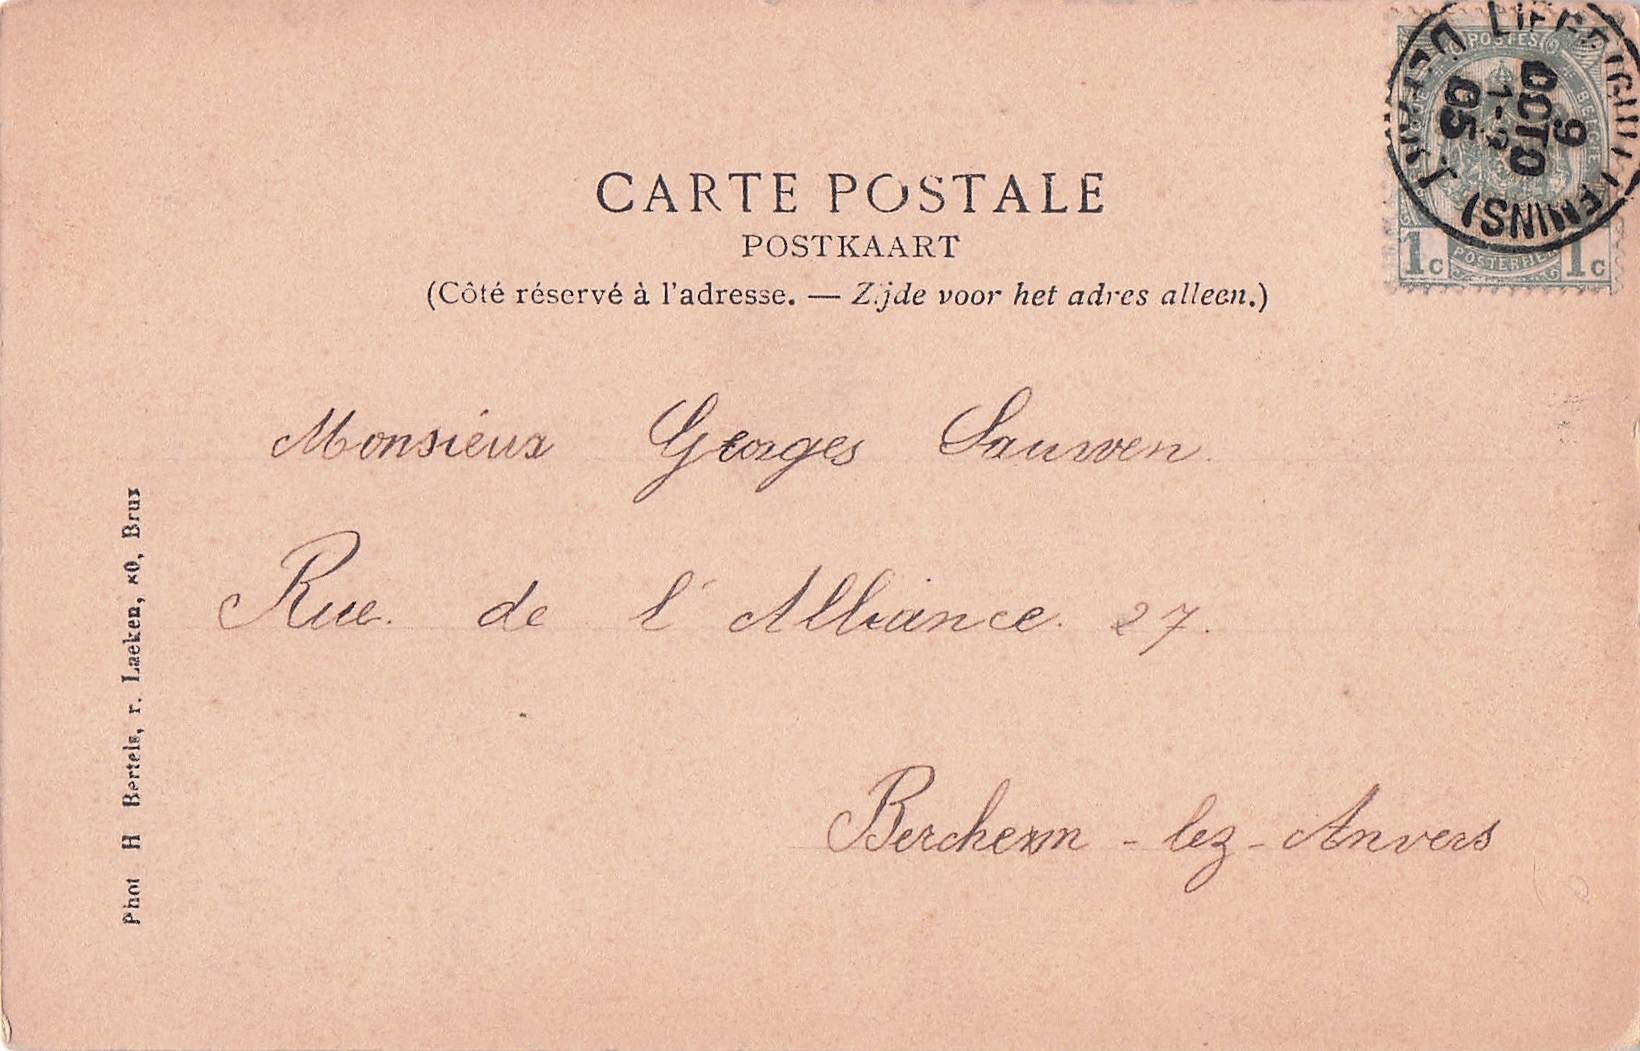 CARTE POSTALE
POSTKAART
(Côté réservé à l'adresse. — Zijde voor het adres alleen.)
POSTES
1c 1c
9
OCTO
05
DEPART
Monsiéur Georges Sauwen
Rue de l'Alliance 27.
Berchem - lez - Anvers
Phot H Bertels, r. Laeken, 80, Brux